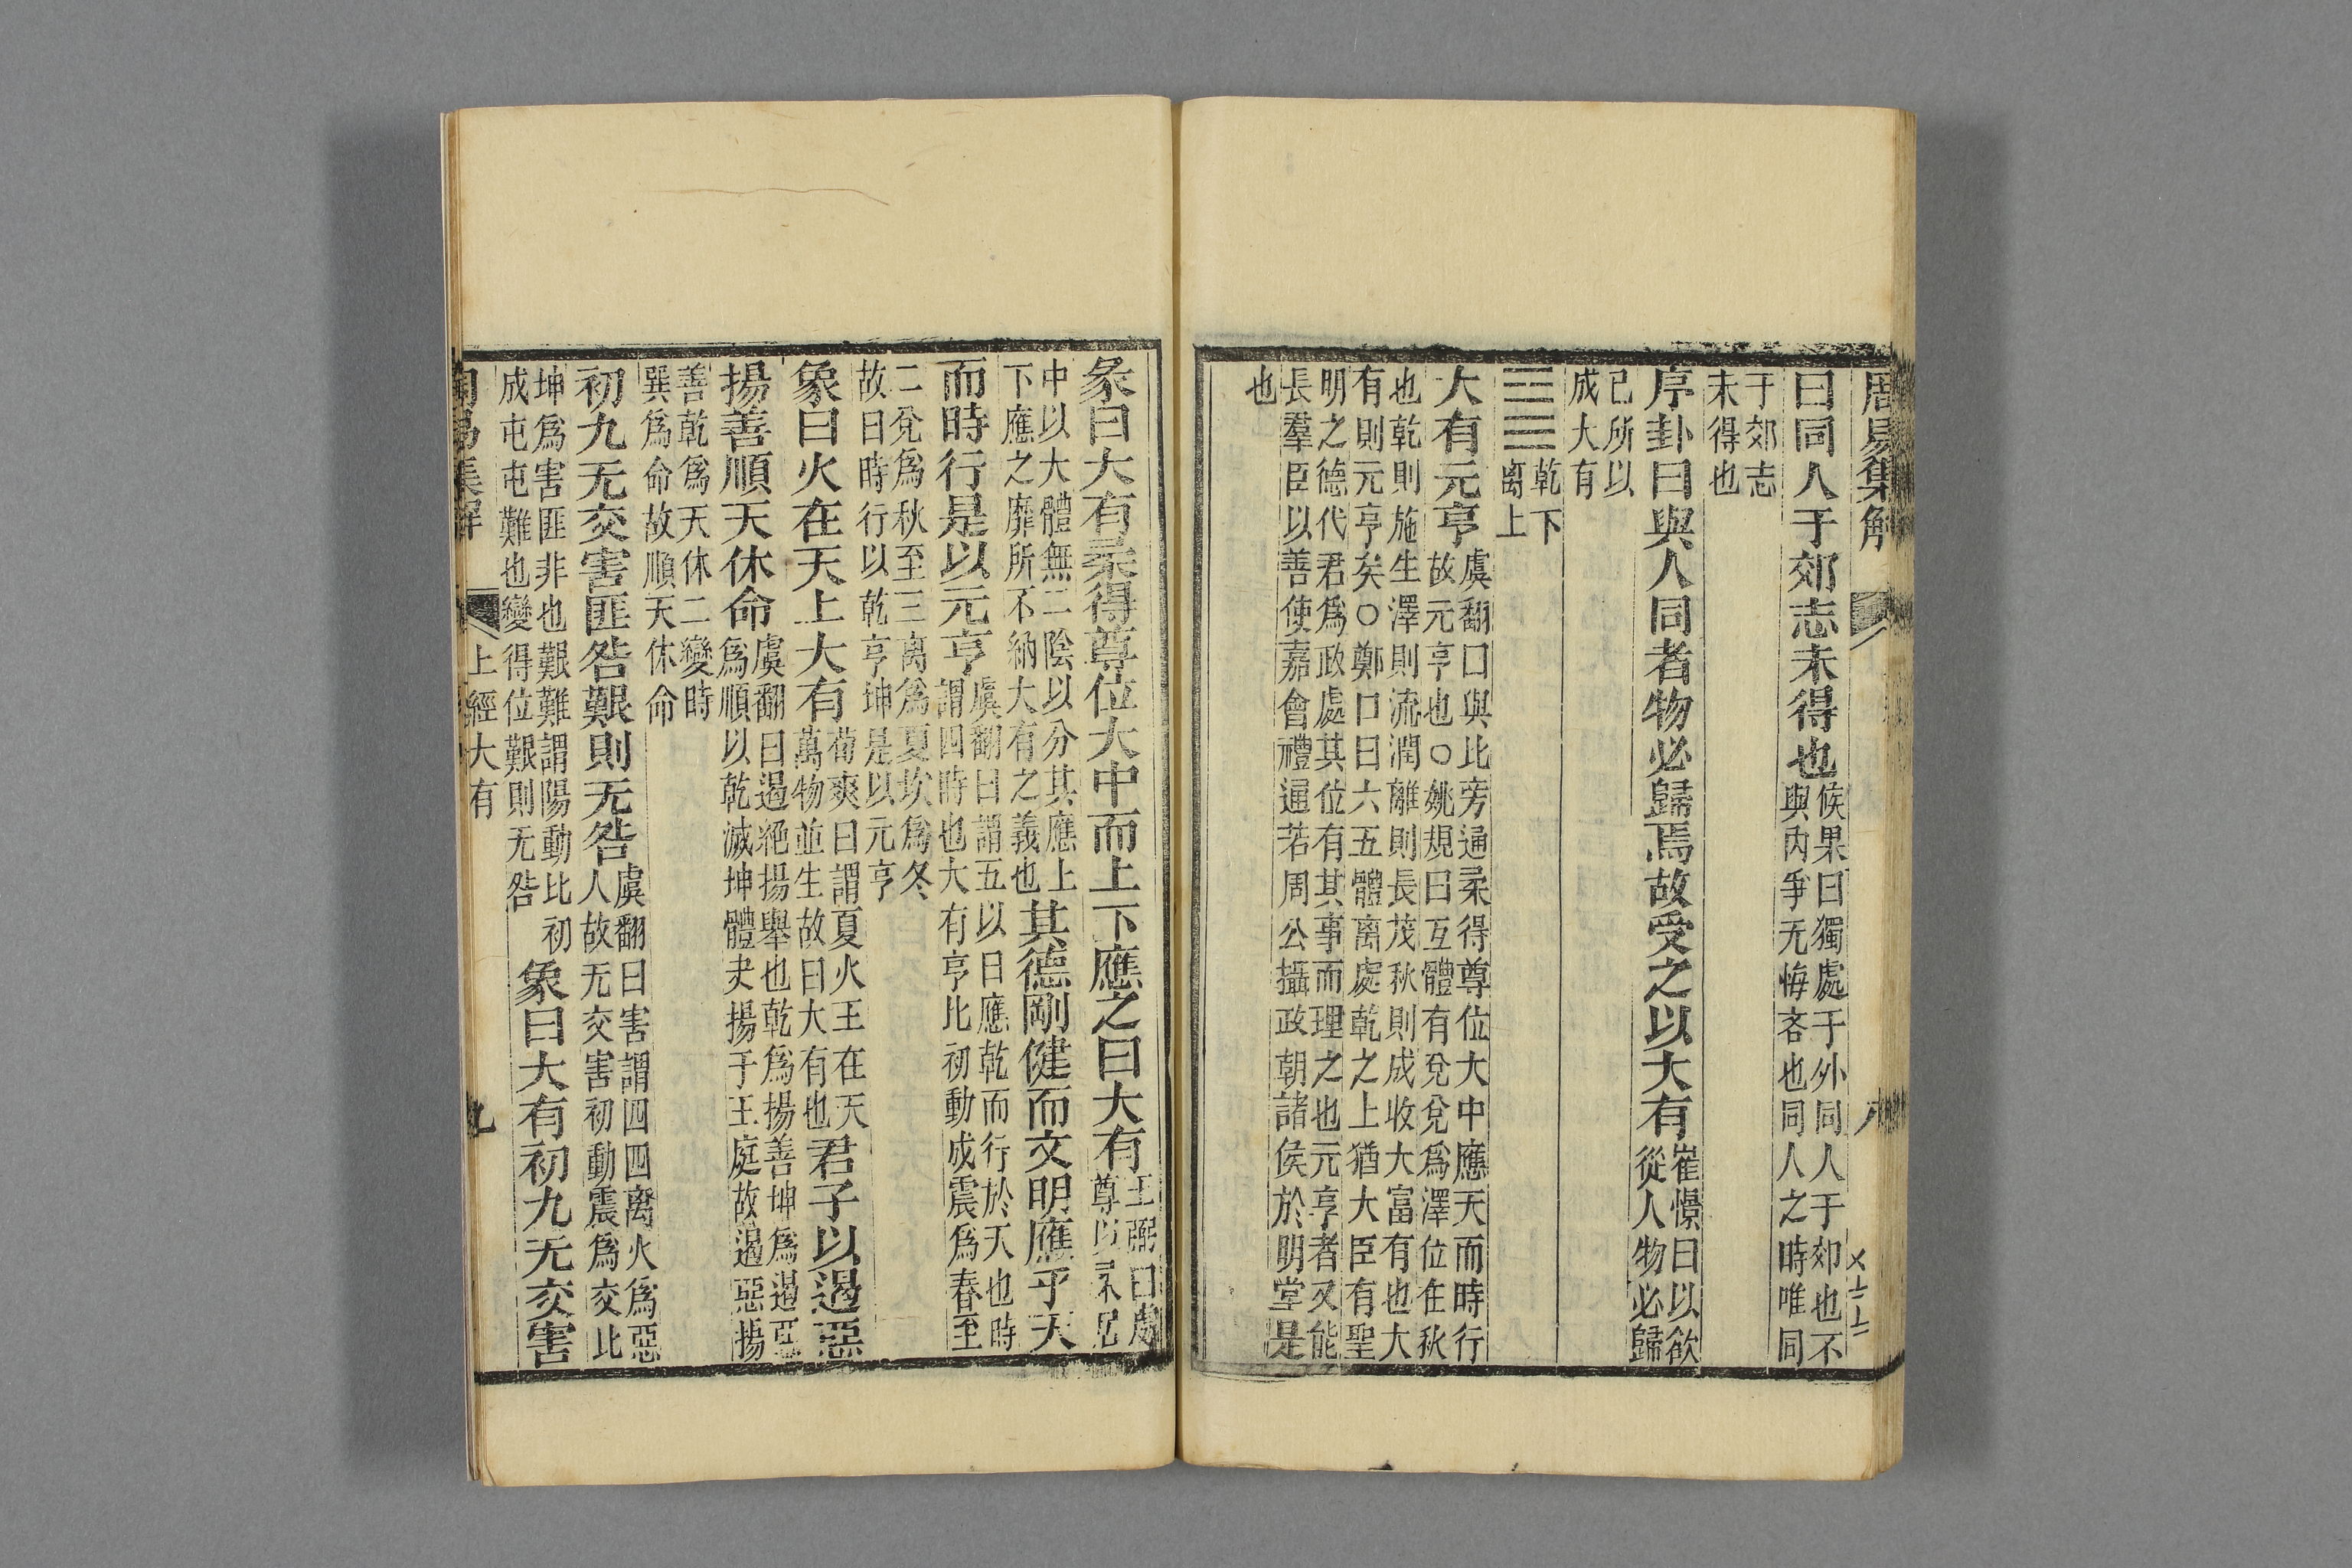 周易集解
曰同人于郊志未得也侯果曰獨處于外同人于郊也不
與內爭无悔吝也同人之時唯同
于郊志
未得也
序卦曰與人同者物必歸焉故受之以大有崔憬曰以欲
從人物必歸
己所以
成大有
乾下
離上
大有元亨虞翻曰與比旁通柔得尊位大中應天而時行
故元亨也○姚規曰互體有兌兌爲澤位在秋
也乾則施生澤則流潤離則長茂秋則成收大富有也大
有則元亨矣○鄭口曰六五體离處乾之上猶大臣有聖
明之德代君爲政處其位有其事而理之也元亨者又能
長羣臣以善使嘉會禮通若周公攝政朝諸侯於明堂是
也
彖曰大有柔得尊位大中而上下應之曰大有王弼曰處
尊以柔居
中以大體無二陰以分其應上
下應之靡所不納大有之義也其德剛健而文明應乎天
而時行是以元亨虞翻曰謂五以日應乾而行於天也時
謂四時也大有亨比初動成震爲春至
二兌爲秋至三离爲夏坎爲冬
故曰時行以乾亨坤是以元亨
象曰火在天上大有荀爽曰謂夏火王在天
萬物並生故曰大有也君子以遏惡
揚善順天休命虞翻曰遏絕揚舉也乾爲揚善坤爲遏惡
爲順以乾滅坤體夬揚于王庭故遏惡揚
善乾爲天休二變時
巽爲命故順天休命
初九无交害匪咎艱則无咎虞翻曰害謂四四离火爲惡
人故无交害初動震爲交比
坤爲害匪非也艱難謂陽動比初
成屯屯難也變得位艱則无咎象曰大有初九无交害
周易集解 上經大有 九